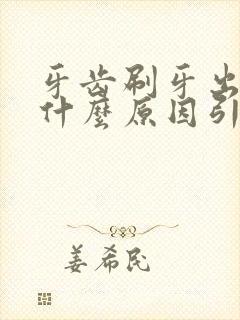 牙齿刷牙出
什麼原因引
姜希民